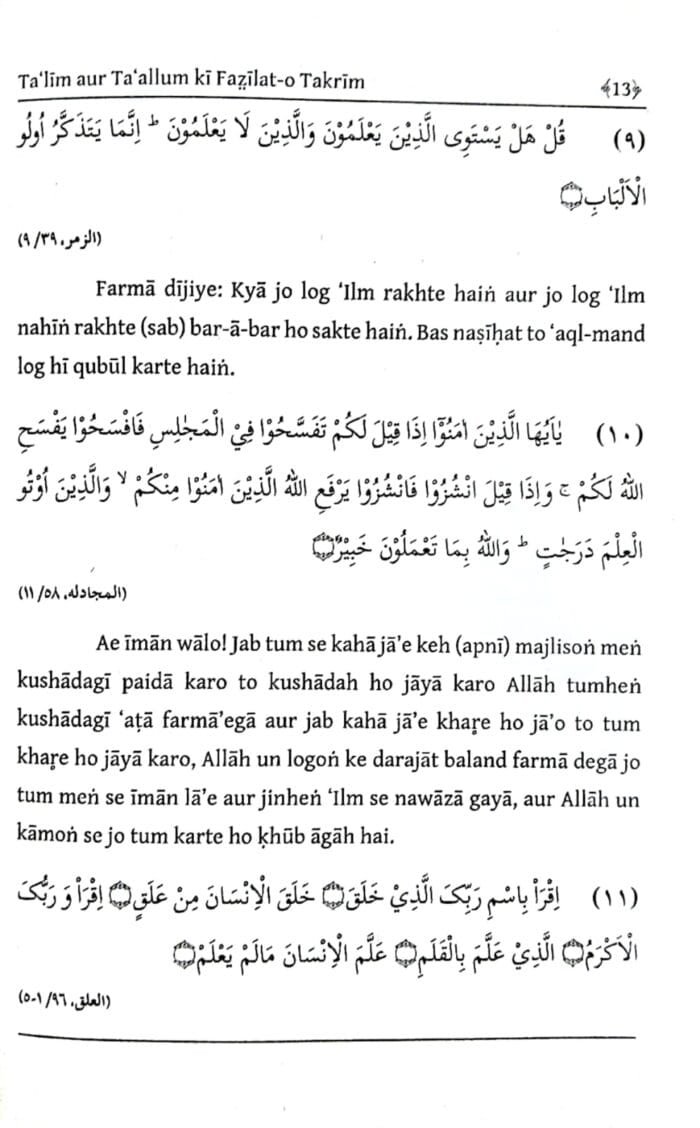 Ta‘līm aur Ta‘allum kī Faz̤īlat-o Takrīm ﴾13﴿
(٩) قُلْ هَلْ يَسْتَوِی الَّذِيْنَ يَعْلَمُوْنَ وَالَّذِيْنَ لَا يَعْلَمُوْنَ ؕ اِنَّمَا يَتَذَكَّرُ اُولُو
الْاَلْبَابِ۝
(الزمر، ٣٩/ ٩)
Farmā dījiye: Kyā jo log ‘Ilm rakhte haiṅ aur jo log ‘Ilm
nahīṅ rakhte (sab) bar-ā-bar ho sakte haiṅ. Bas naṣīḥat to ‘aql-mand
log hī qubūl karte haiṅ.
(١٠) يٰاَيُّهَا الَّذِيْنَ اٰمَنُوْٓا اِذَا قِيْلَ لَكُمْ تَفَسَّحُوْا فِيْ الْمَجٰلِسِ فَافْسَحُوْا يَفْسَحِ
اللهُ لَكُمْ ۚ وَاِذَا قِيْلَ انْشُزُوْا فَانْشُزُوْا يَرْفَعِ اللهُ الَّذِيْنَ اٰمَنُوْا مِنْكُمْ ۙ وَالَّذِيْنَ اُوْتُو
الْعِلْمَ دَرَجٰتٍ ؕ وَاللهُ بِمَا تَعْمَلُوْنَ خَبِيْرٌ۝
(المجادله، ٥٨/ ١١)
Ae īmān wālo! Jab tum se kahā jā’e keh (apnī) majlisoṅ meṅ
kushādagī paidā karo to kushādah ho jāyā karo Allāh tumheṅ
kushādagī ‘aṭā farmā’egā aur jab kahā jā’e khaṛe ho jā’o to tum
khaṛe ho jāyā karo, Allāh un logoṅ ke darajāt baland farmā degā jo
tum meṅ se īmān lā’e aur jinheṅ ‘Ilm se nawāzā gayā, aur Allāh un
kāmoṅ se jo tum karte ho ḳhūb āgāh hai.
(١١) اِقْرَاْ بِاسْمِ رَبِّكَ الَّذِيْ خَلَقَ۝ خَلَقَ الْاِنْسَانَ مِنْ عَلَقٍ۝ اِقْرَاْ وَ رَبُّكَ
الْاَكْرَمُ۝ الَّذِيْ عَلَّمَ بِالْقَلَمِ۝ عَلَّمَ الْاِنْسَانَ مَالَمْ يَعْلَمْ۝
(العلق، ٩٦/ ١-٥)